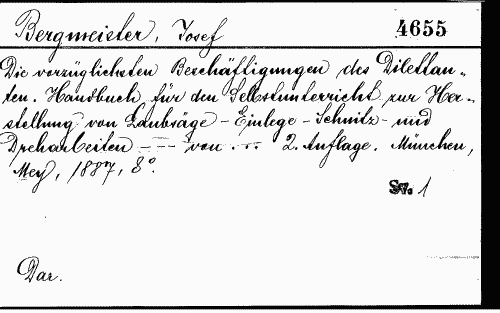 Bergmeister, Josef 4655
Die vorzüglichsten Beschäftigungen des Dilettan-
ten. Handbuch für den Selbstunterricht zur Her-
stellung von Laubsäge - Einlege - Schnitz - und
Dreharbeiten --- von ... 2. Auflage. München,
Mey, 1887, 8°.
Sv. 1
Dar.